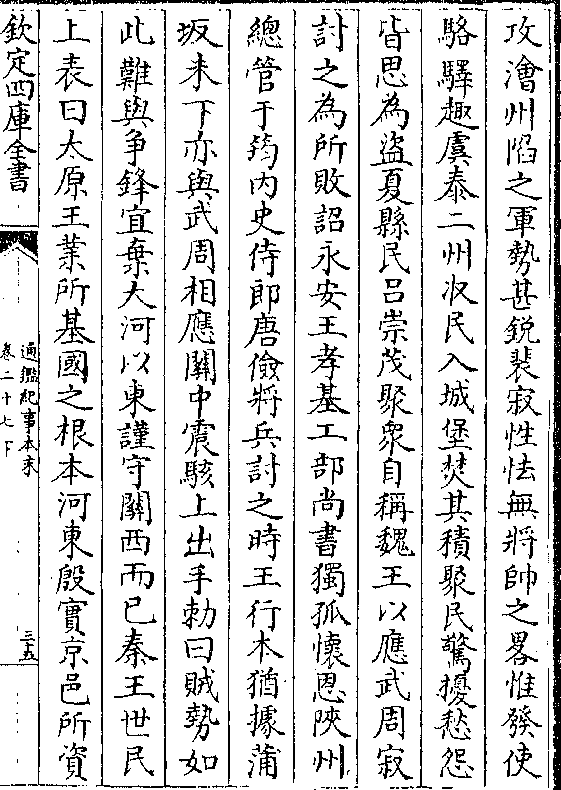 攻澮州陷之軍勢甚銳裴寂性怯無將帥之畧惟發使
駱驛趣虞泰二州收民入城堡焚其積聚民驚擾愁怨
皆思為盜夏縣民吕崇茂聚衆自稱魏王以應武周寂
討之為所敗詔永安王孝基工部尚書獨孤懷恩陜州
總管于筠内史侍郎唐儉將兵討之時王行本猶據蒲
坂未下亦與武周相應關中震駭上出手勅曰賊勢如
此難與争鋒宜棄大河以東謹守關西而已秦王世民
上表曰太原王業所基國之根本河東殷實京邑所資
欽定四庫全書
通鑑紀事本末
卷二十七下
三五